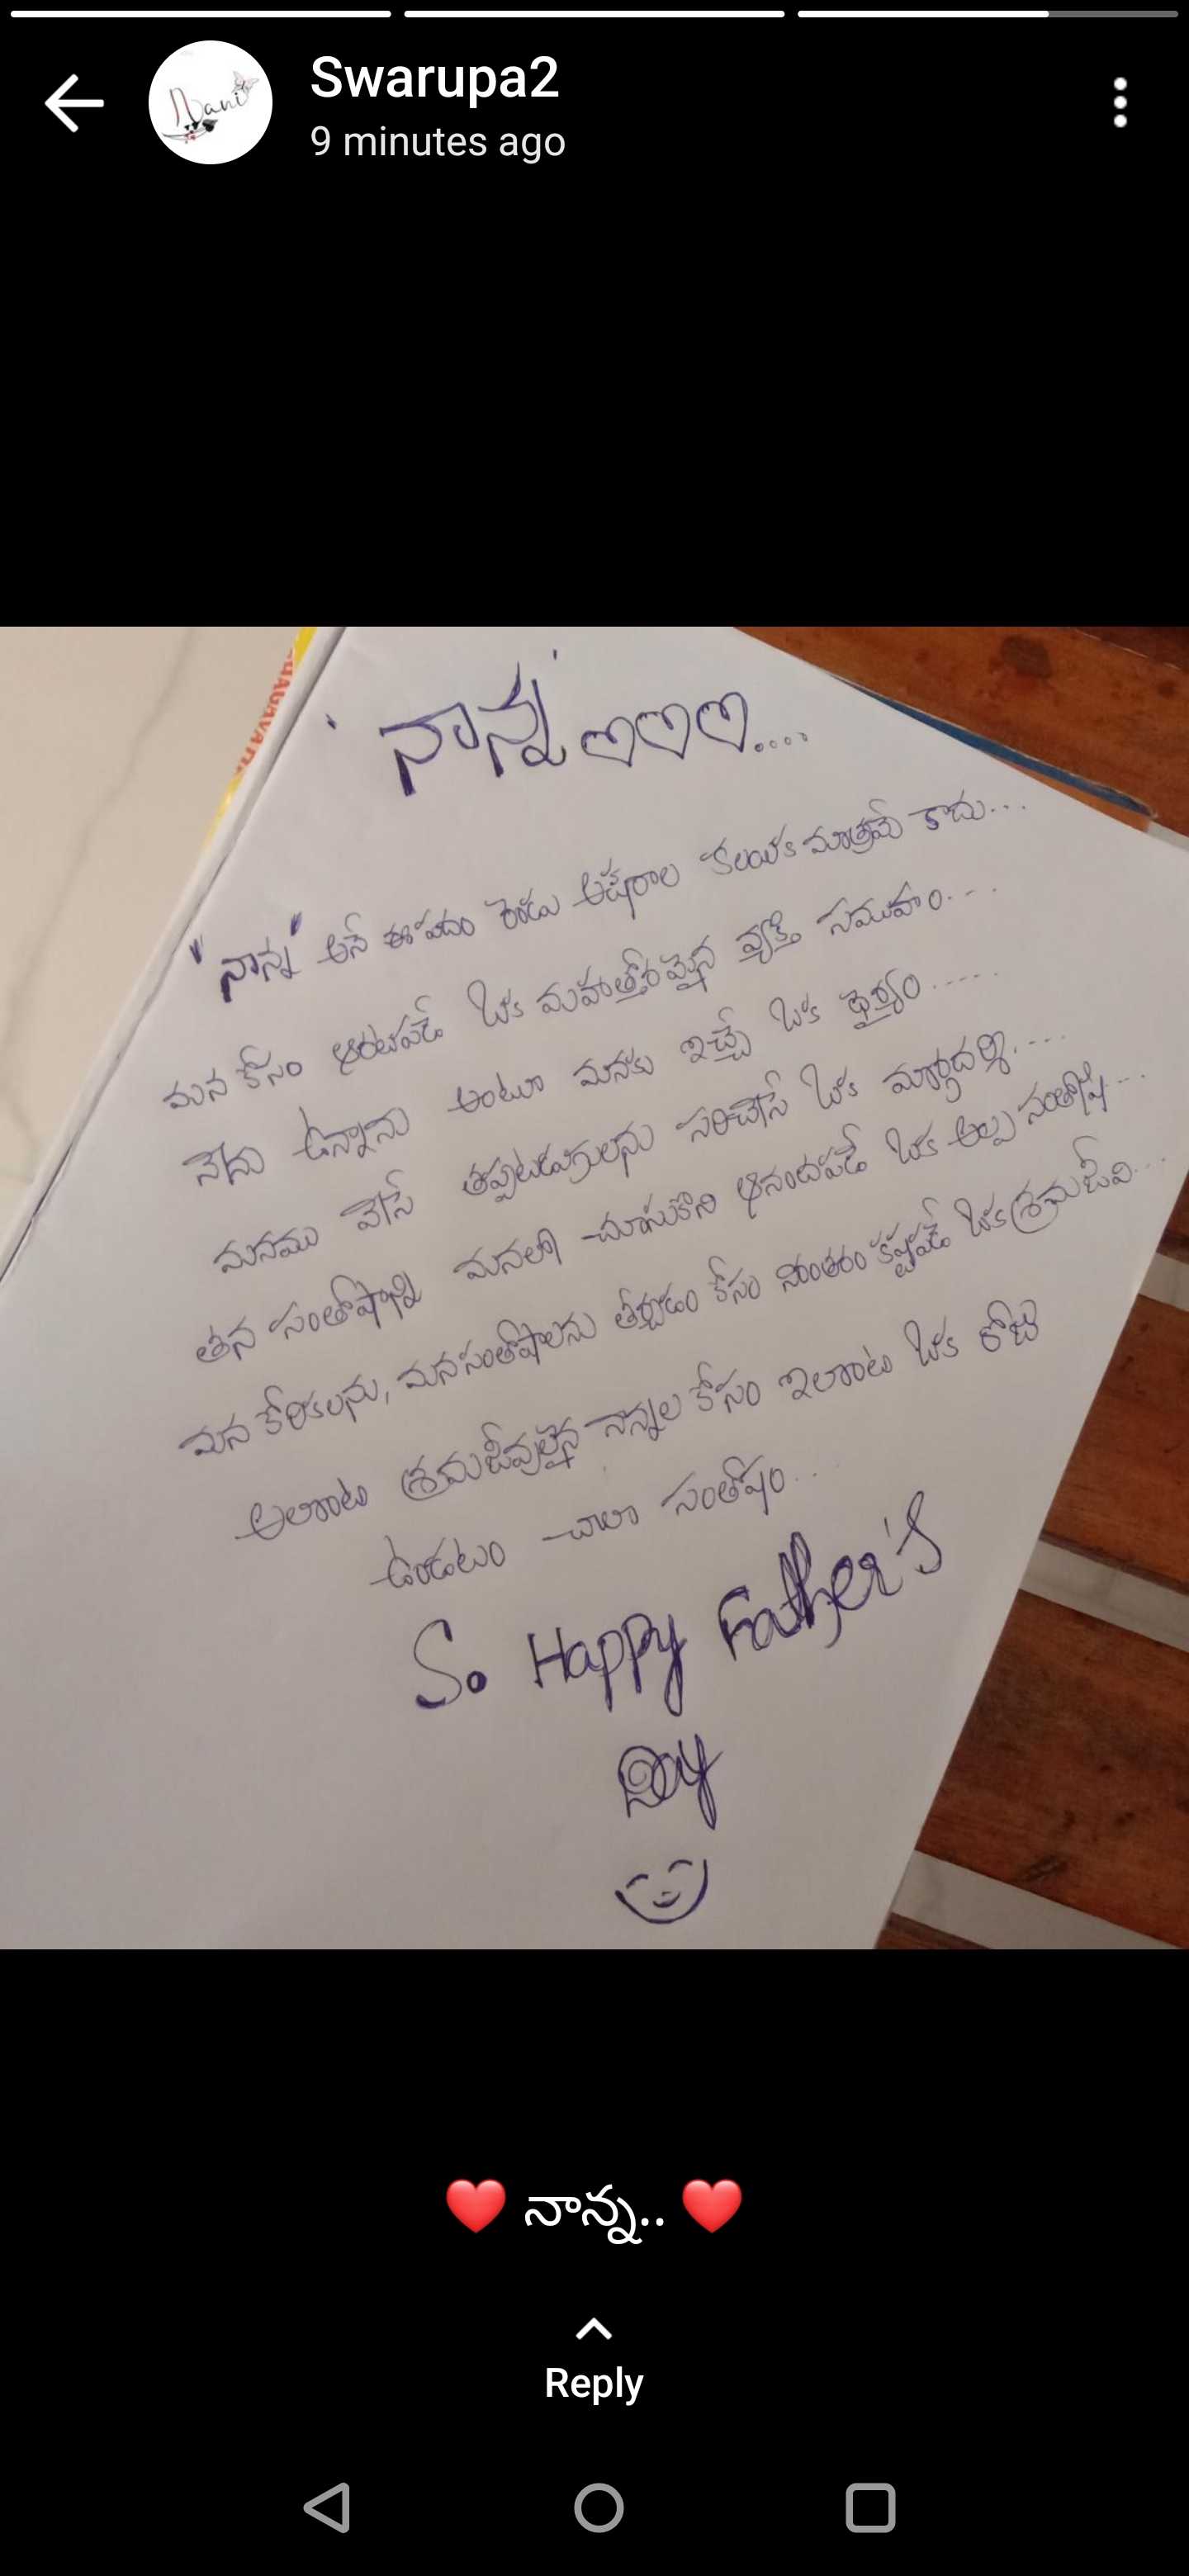 Nani
Swarupa2
9 minutes ago
'నాన్న'....
"నాన్న" అనే ఈ పదం రెండు అక్షరాల కలయిక మాత్రమే కాదు...
మన కోసం ఆరటపడే ఒక మహాత్తోరమైన వ్యక్తి సముహం....
నేను ఉన్నాను అంటూ మనకు ఇచ్చే ఒక ధైర్యం.....
మనము వేసే తప్పటడుగులను సరిచేసే ఒక మార్గదర్శి.....
తన సంతోషాన్ని మనలో చూసుకొని ఆనందపడే ఒక అల్ప సంతోషి...
మన కోరికలను, మన సంతోషాలను తీర్చడం కోసం నిరంతరం కష్టపడే ఒక శ్రమజీవి...
అలాంటి శ్రమజీవులైన నాన్నల కోసం ఇలాంటి ఒక రోజు
ఉండటం చాలా సంతోషం...
So Happy Father's
Day
❤️ నాన్న.. ❤️
Reply